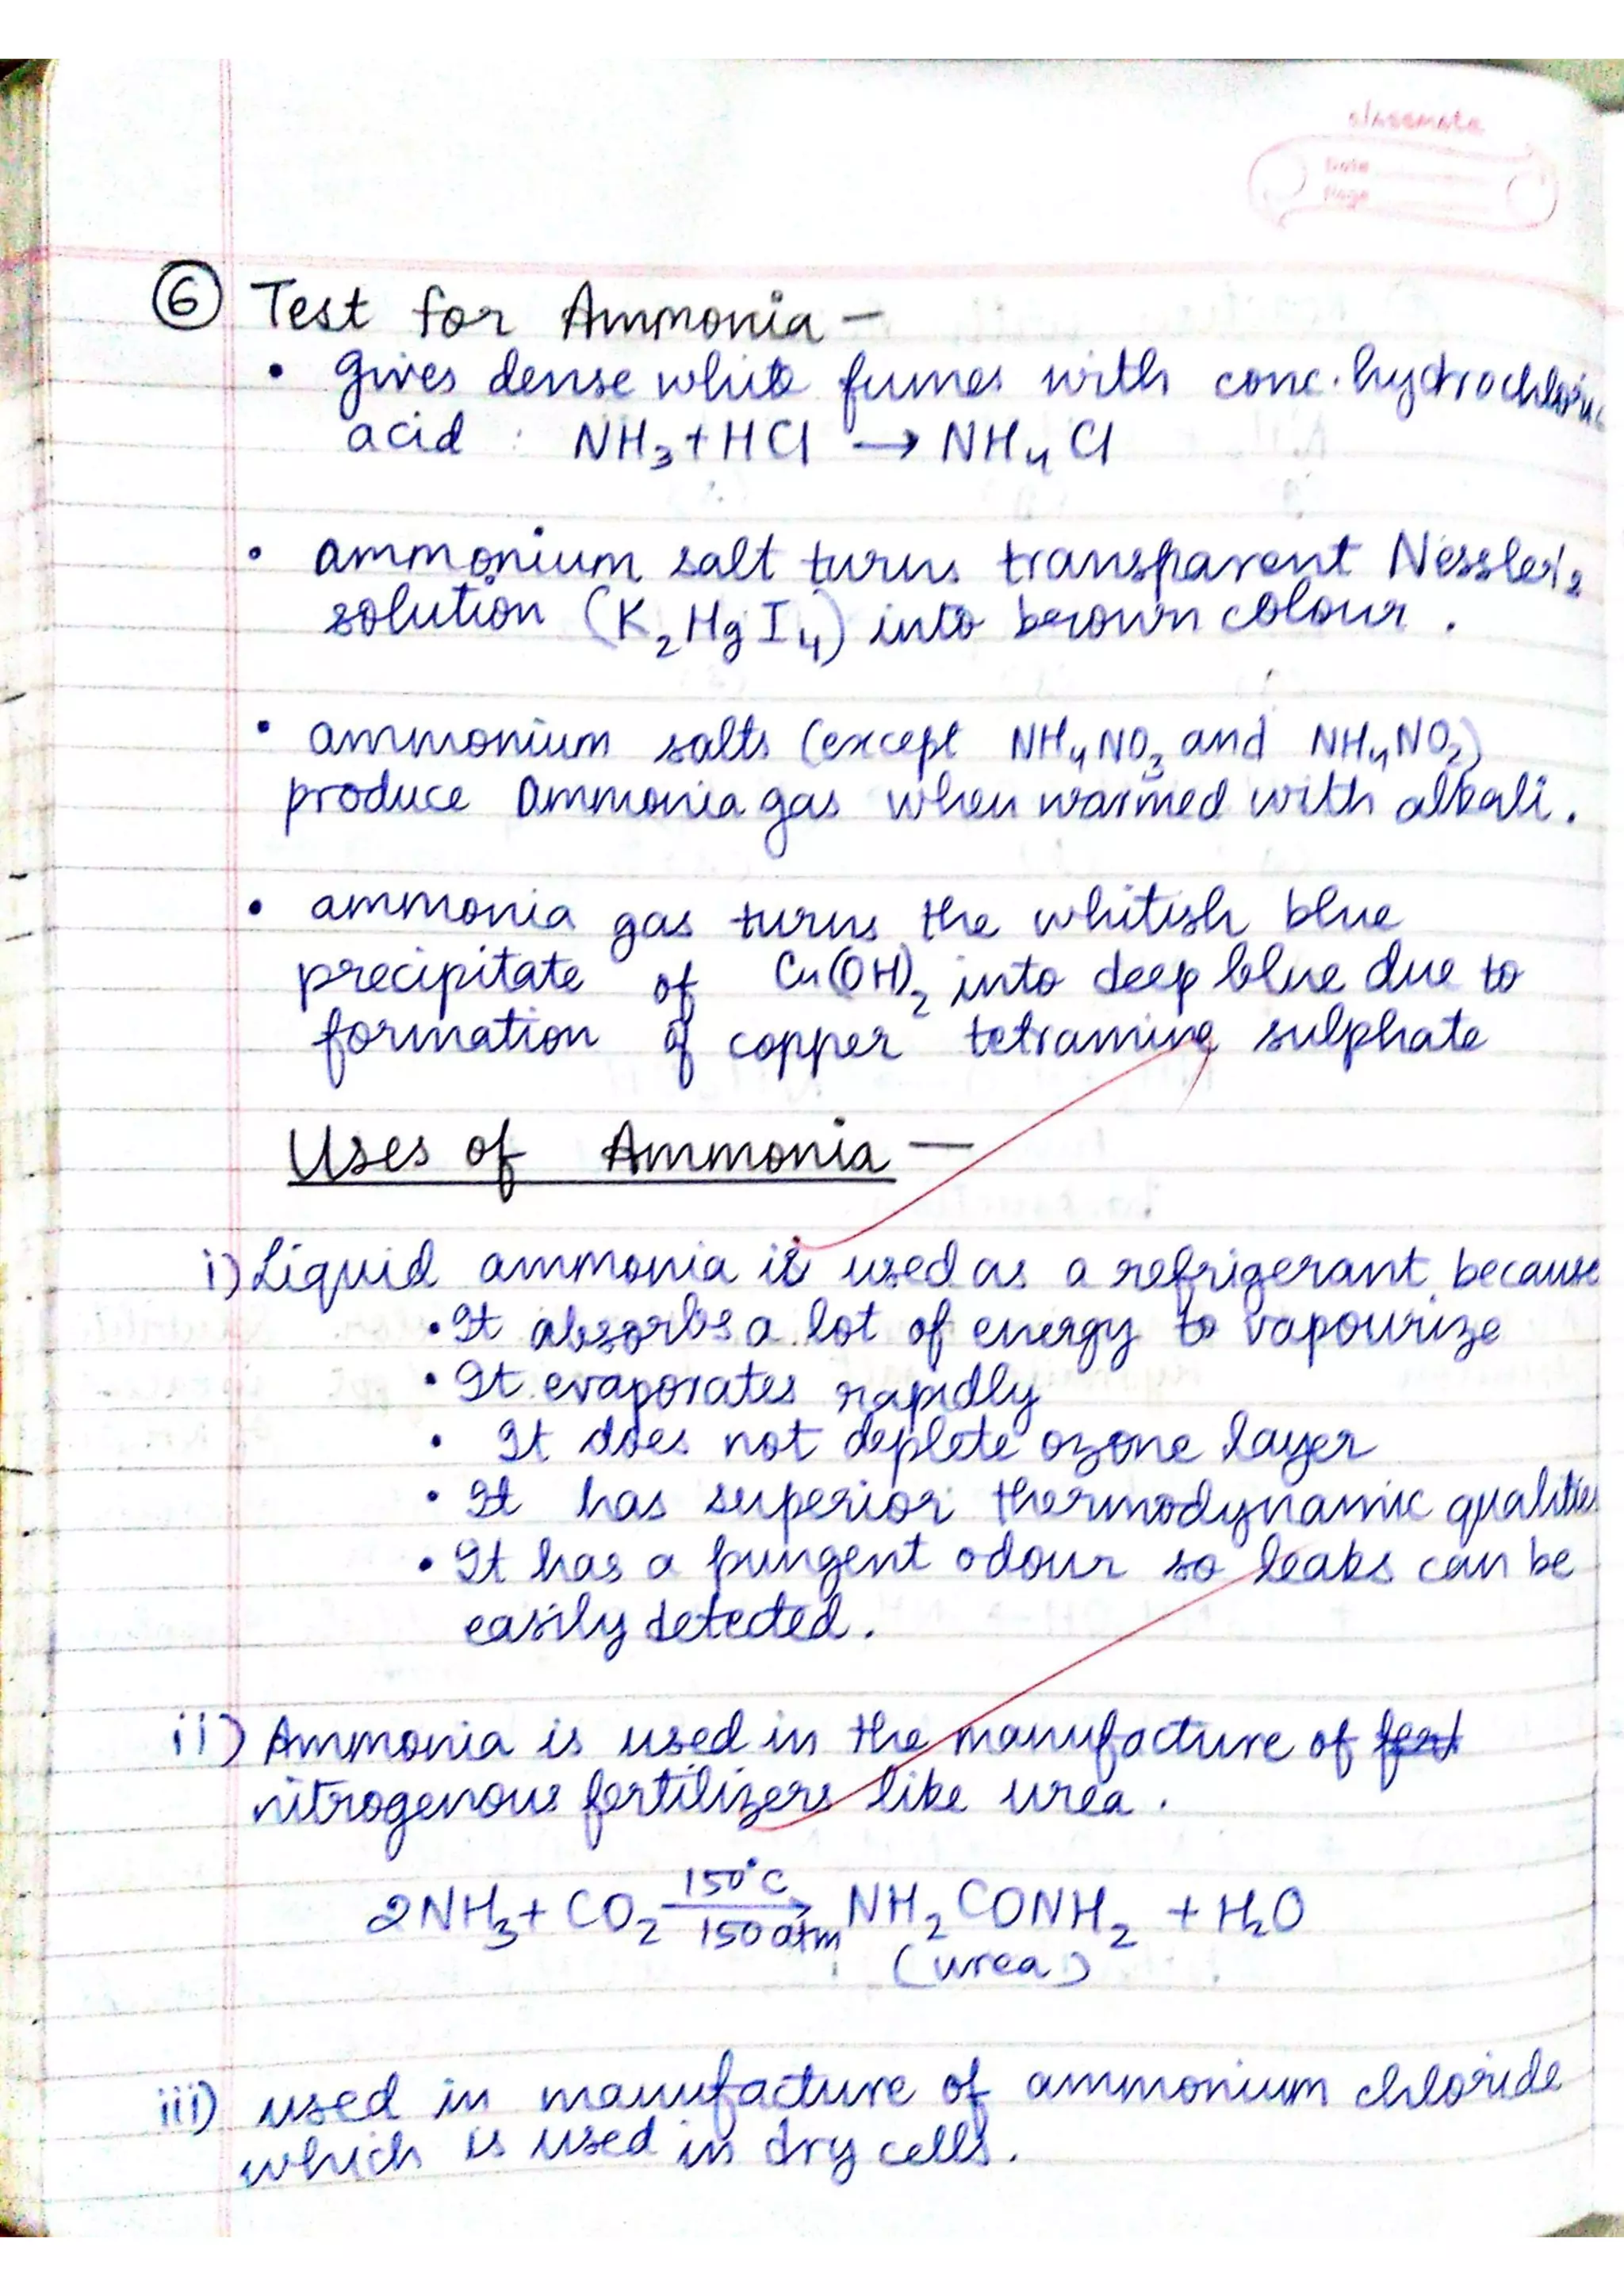 classmate
Date
Page
⑥ Test for Ammonia —
• gives dense white fumes with conc. hydrochloric
acid : NH₃ + HCl → NH₄Cl
• ammonium salt turns transparent Nessler's
solution (K₂HgI₄) into brown colour.
• ammonium salts (except NH₄NO₃ and NH₄NO₂)
produce Ammonia gas when warmed with alkali.
• ammonia gas turns the whitish blue
precipitate of Cu(OH)₂ into deep blue due to
formation of copper tetramine sulphate
Uses of Ammonia —
i) Liquid ammonia is used as a refrigerant because
• It absorbs a lot of energy to vapourize
• It evaporates rapidly
• It does not deplete ozone layer
• It has superior thermodynamic qualities
• It has a pungent odour so leaks can be
easily detected.
ii) Ammonia is used in the manufacture of
nitrogenous fertilizers like urea.
150°C
2NH₃ + CO₂ → NH₂CONH₂ + H₂O
150 atm
(urea)
iii) used in manufacture of ammonium chloride
which is used in dry cells.